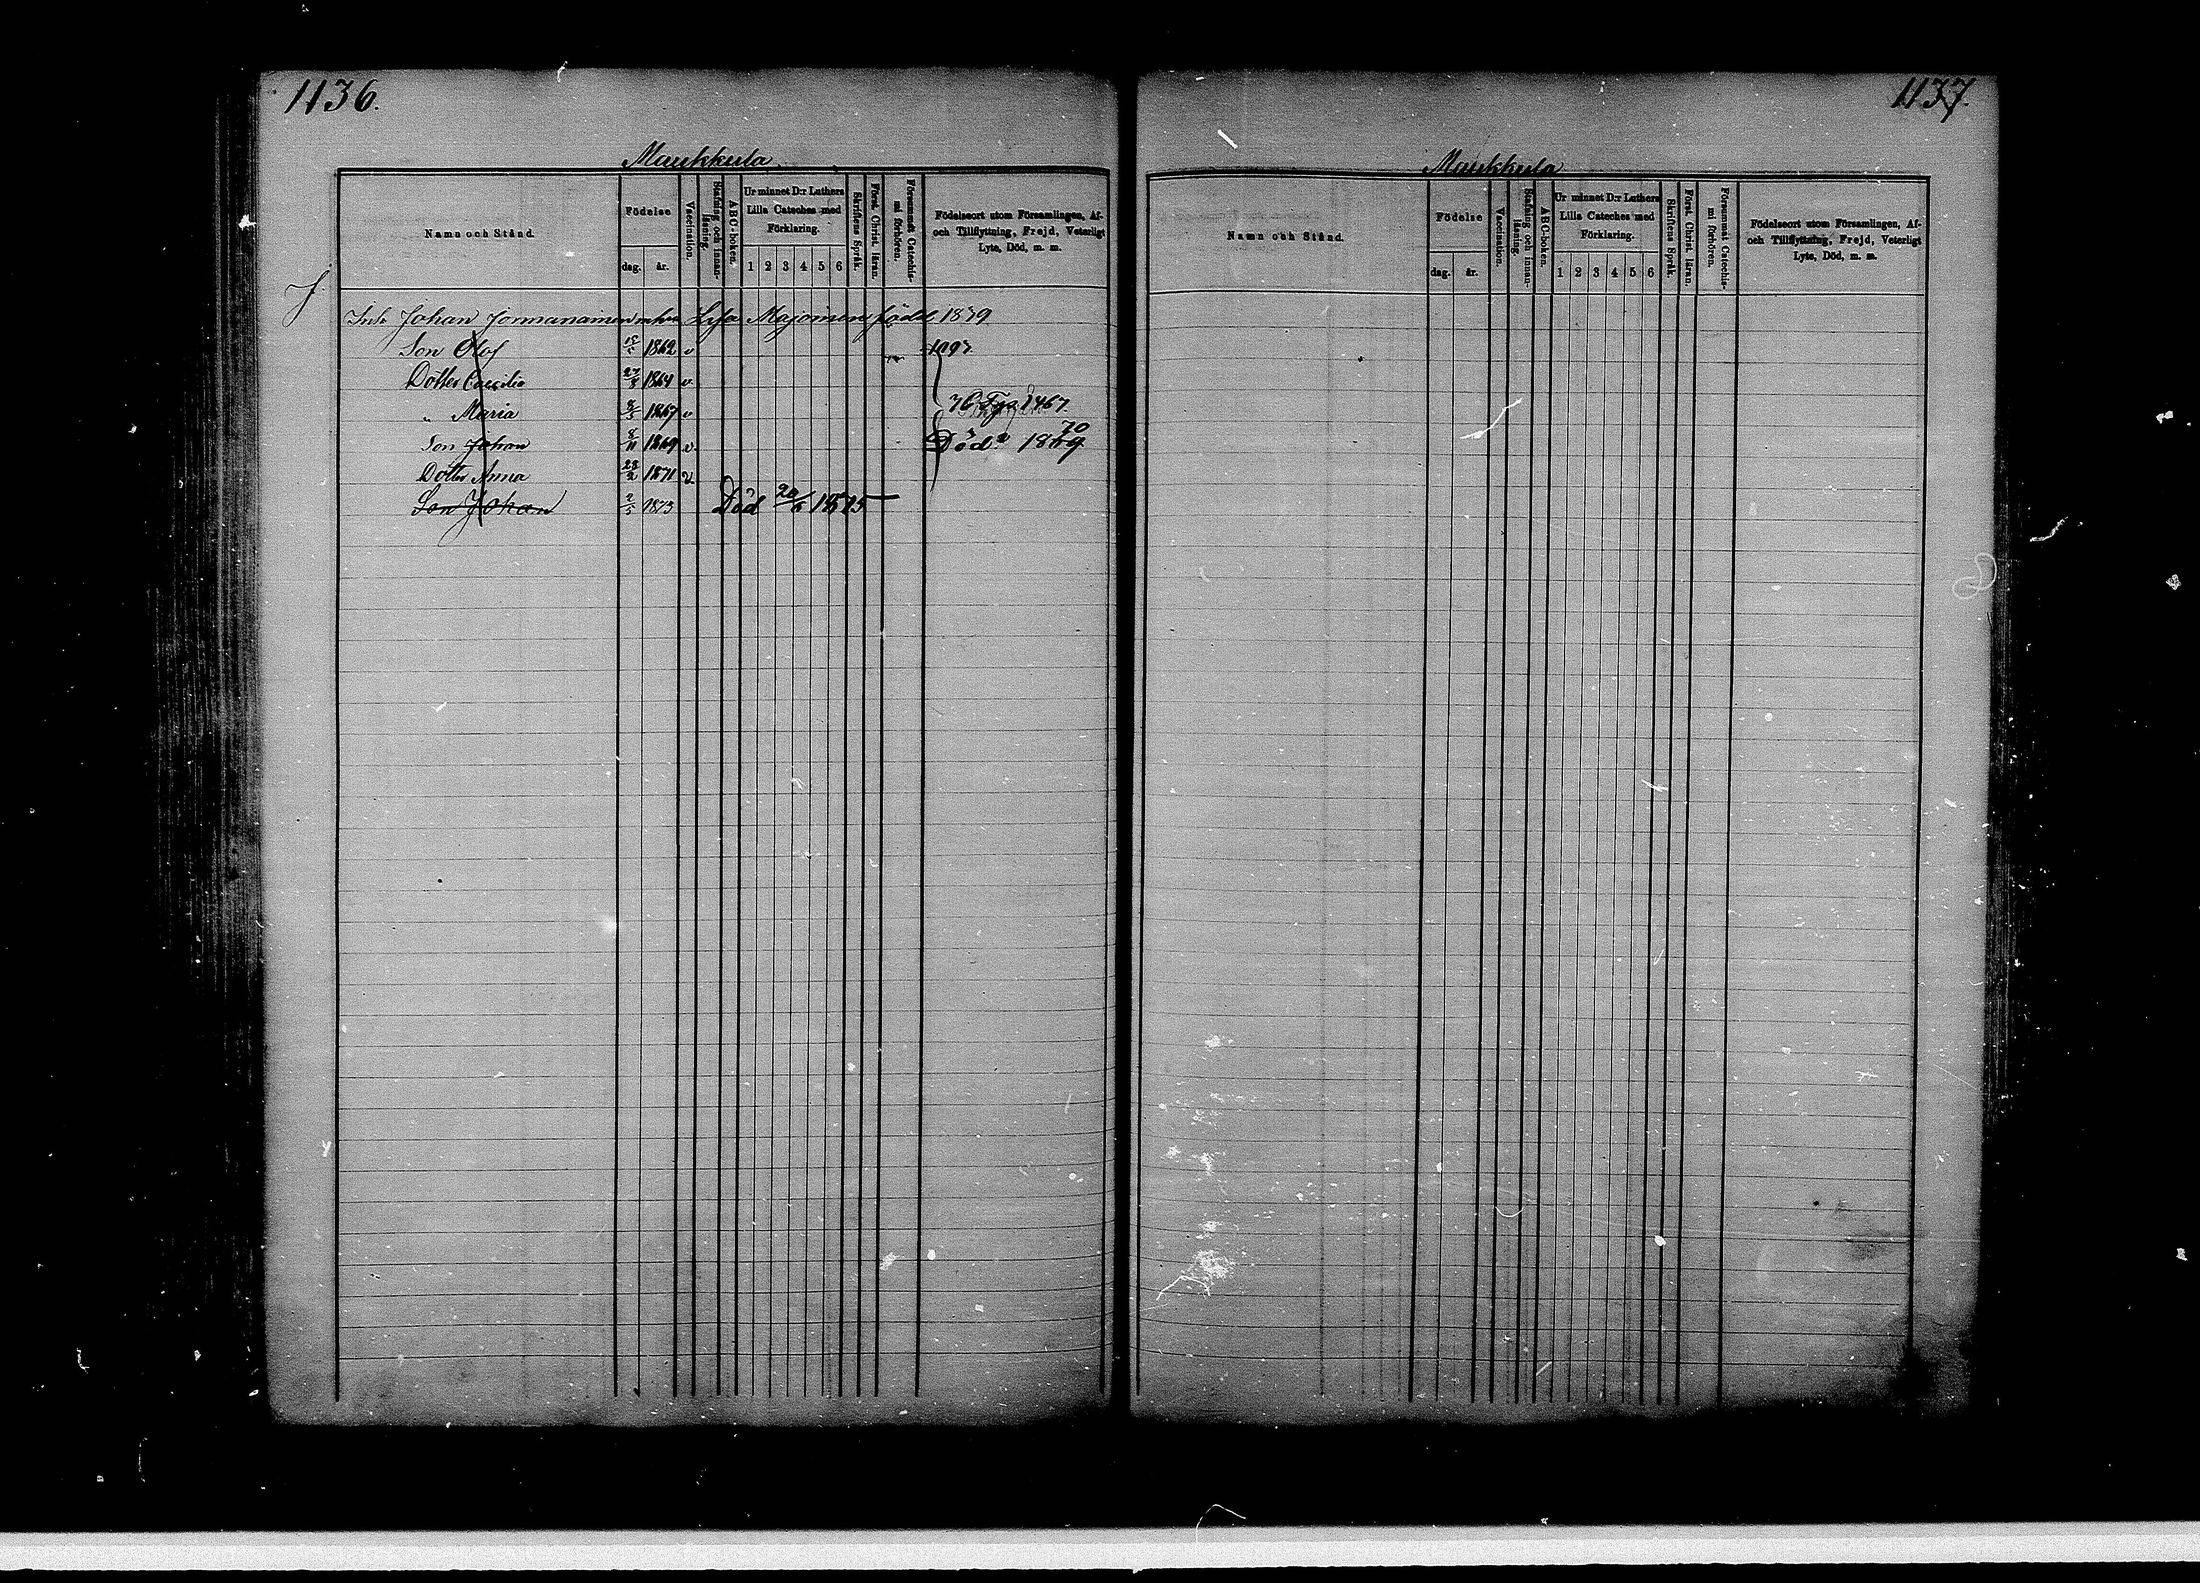 1136.
Maukkula
Namn och Stånd.
Födelse
dag. år.
Vaccination.
Stafning och innan-
läsning.
A B C-boken.
Ur minnet D:r Luthers
Lilla Cateches med
Förklaring.
1 2 3 4 5 6
Skriftens Språk.
Först. Christ. läran.
Försummat Catechis-
mi förhören.
Födelseort utom Församlingen, Af-
och Tillflyttning, Frejd, Veterligt
Lyte, Död, m. m.
J.
Inh Johan Jormanainen Lisa Majoinen född 1839
Son Olof 1862 v 1097
Dotter Caecilia 27/8 1864 v
„ Maria 8/5 1867 v 1467.
Son Johan 8/11 1869 v Död 1869 70
Dotter Anna 28/2 1871 v
Son Johan 2/5 1873 Död 1875
1137.
Maukkula
Namn och Stånd.
Födelse
dag. år.
Vaccination.
Stafning och innan-
läsning.
A B C-boken.
Ur minnet D:r Luthers
Lilla Cateches med
Förklaring.
1 2 3 4 5 6
Skriftens Språk.
Först. Christ. läran.
Försummat Catechis-
mi förhören.
Födelseort utom Församlingen, Af-
och Tillflyttning, Frejd, Veterligt
Lyte, Död, m. m.